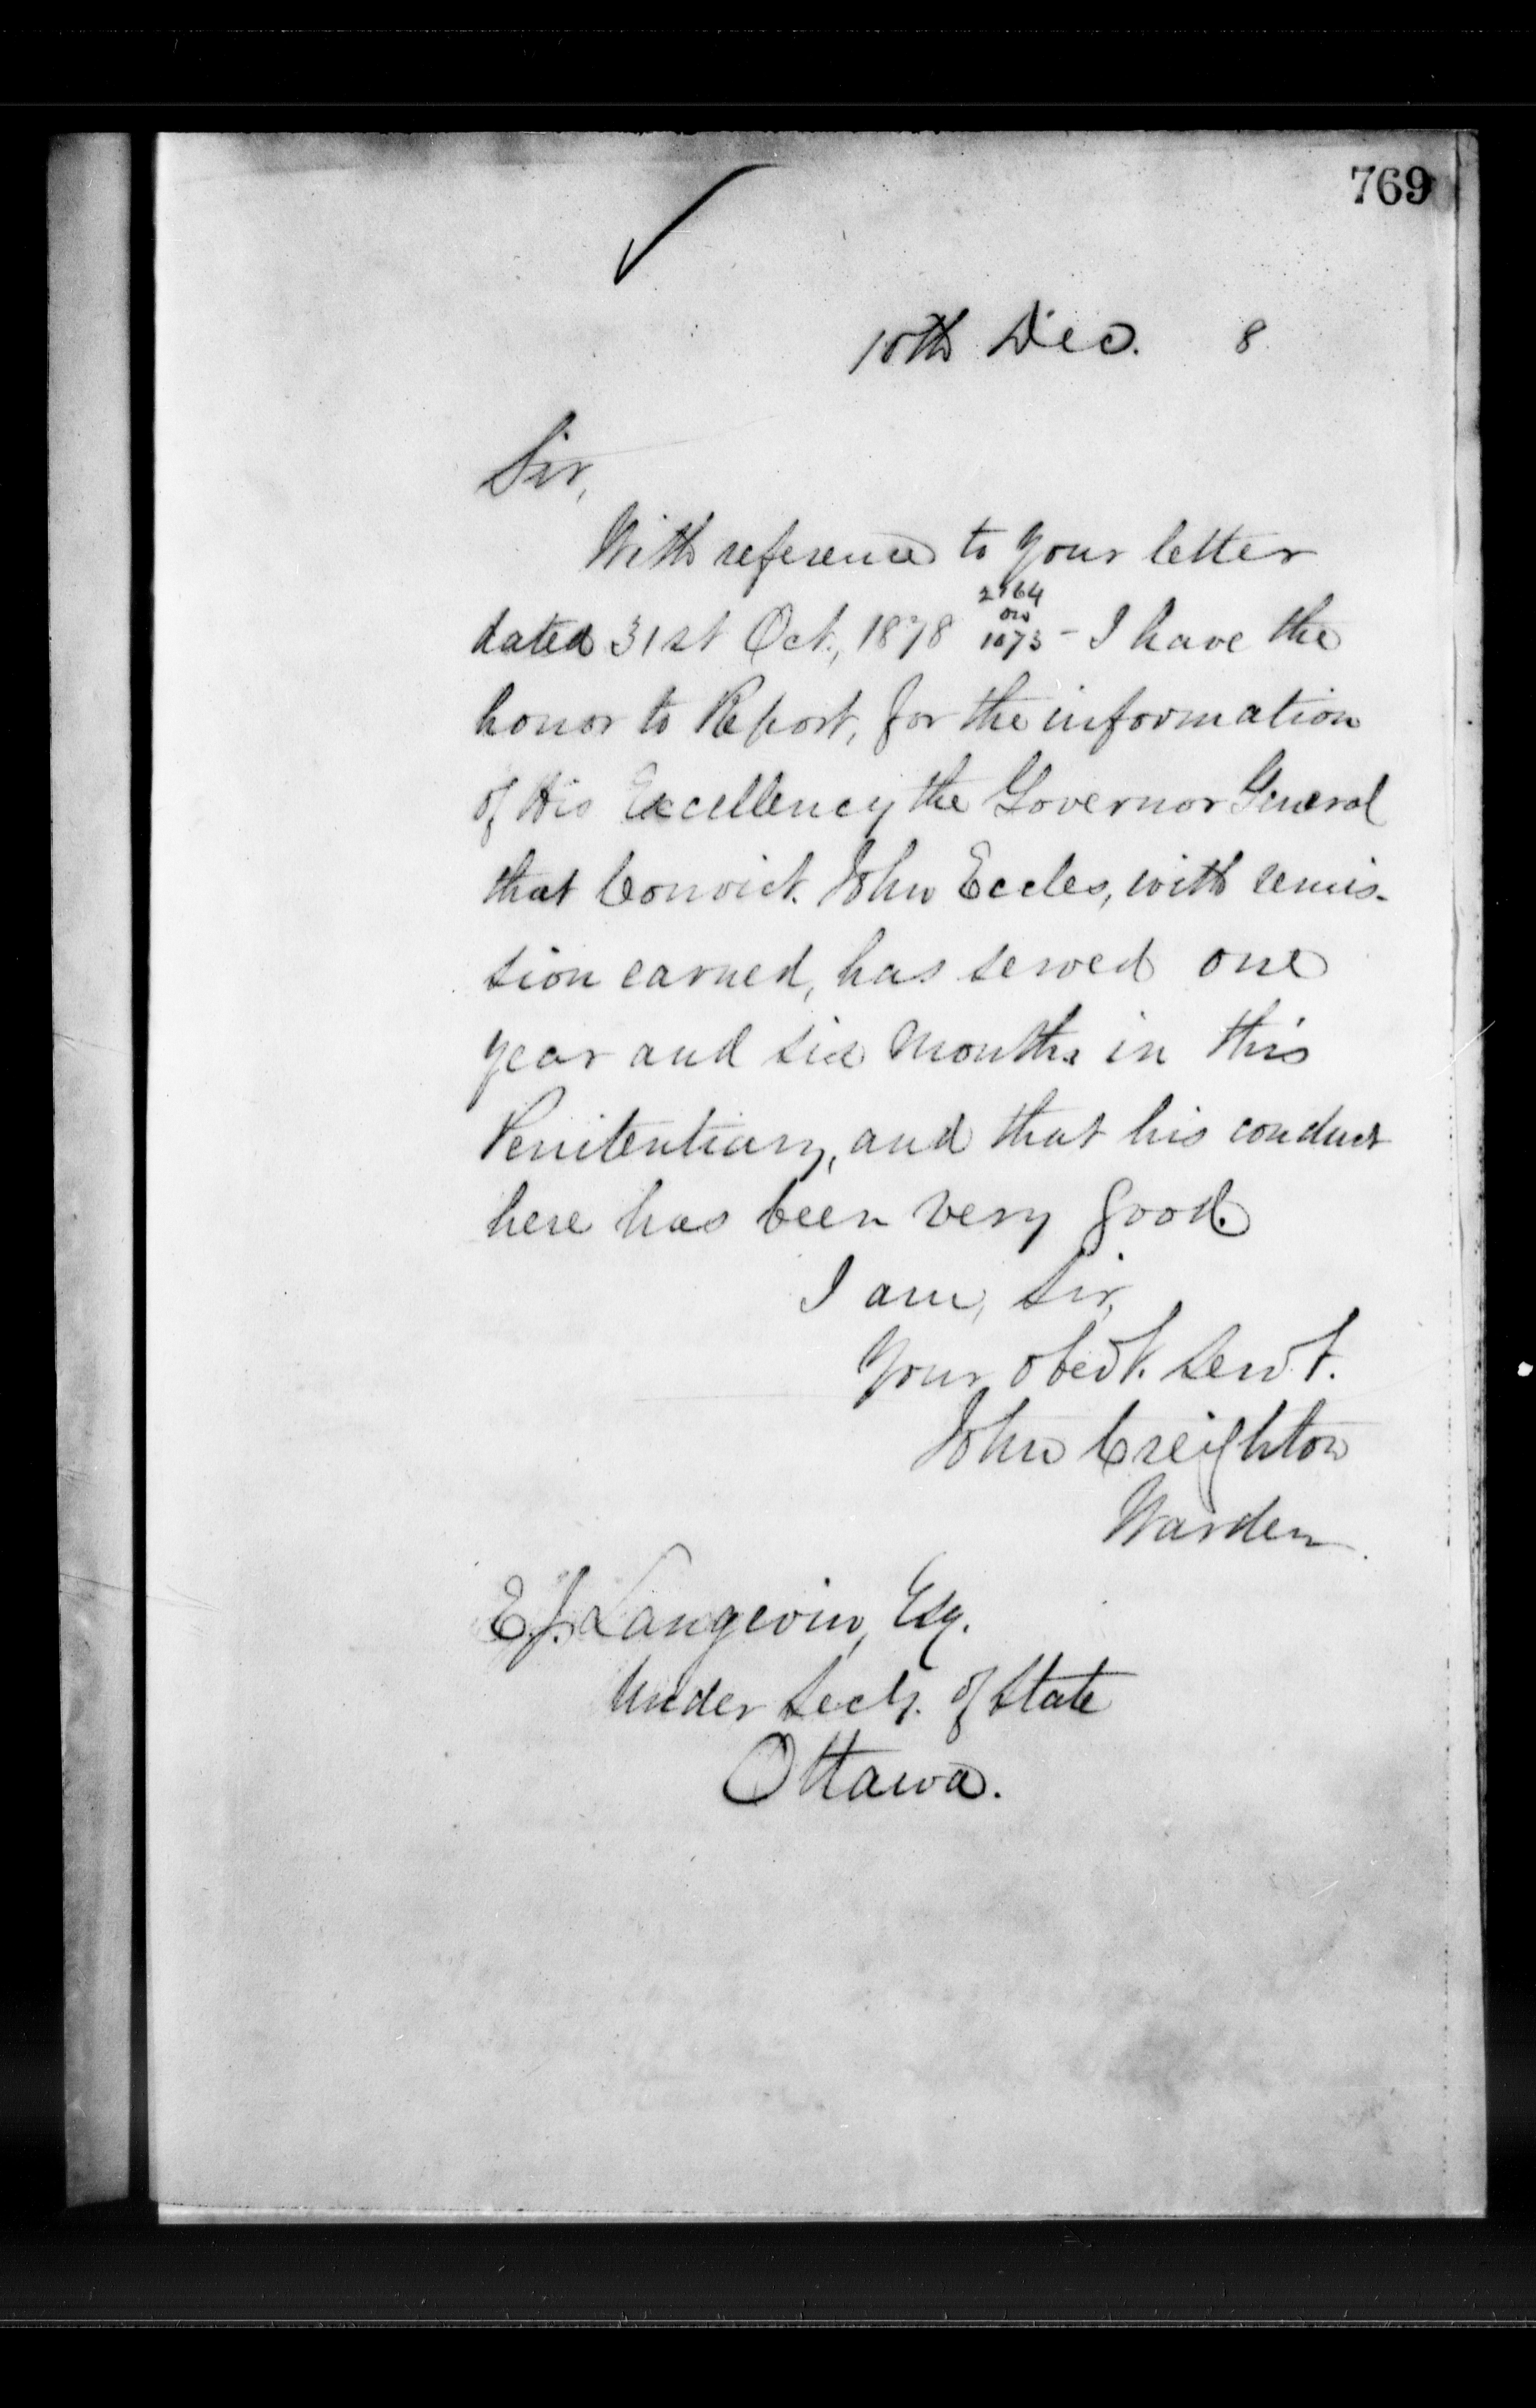 769
10th Dec. 8
Sir,
With reference to your letter
2164
on
dated 31st Oct., 1878 1073 - I have the
honor to Report, for the information
of His Excellency the Governor General
that Convict John Eccles, with remis-
sion earned, has served one
year and six months in this
Penitentiary, and that his conduct
here has been very good.
I am, Sir,
Your obedt. Servt.
John Creighton
Warden
E.J. Langevin, Esq.
Under Secy. of State
Ottawa.